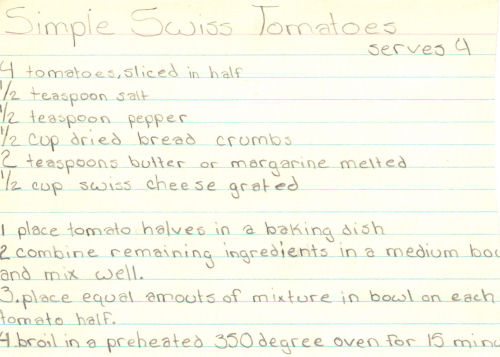 Simple Swiss Tomatoes
serves 4
4 tomatoes, sliced in half
1/2 teaspoon salt
1/2 teaspoon pepper
1/2 cup dried bread crumbs
2 teaspoons butter or margarine melted
1/2 cup swiss cheese grated
1 place tomato halves in a baking dish
2 combine remaining ingredients in a medium
and mix well.
3. place equal amouts of mixture in bowl on each
tomato half.
4. broil in a preheated 350 degree oven for 15